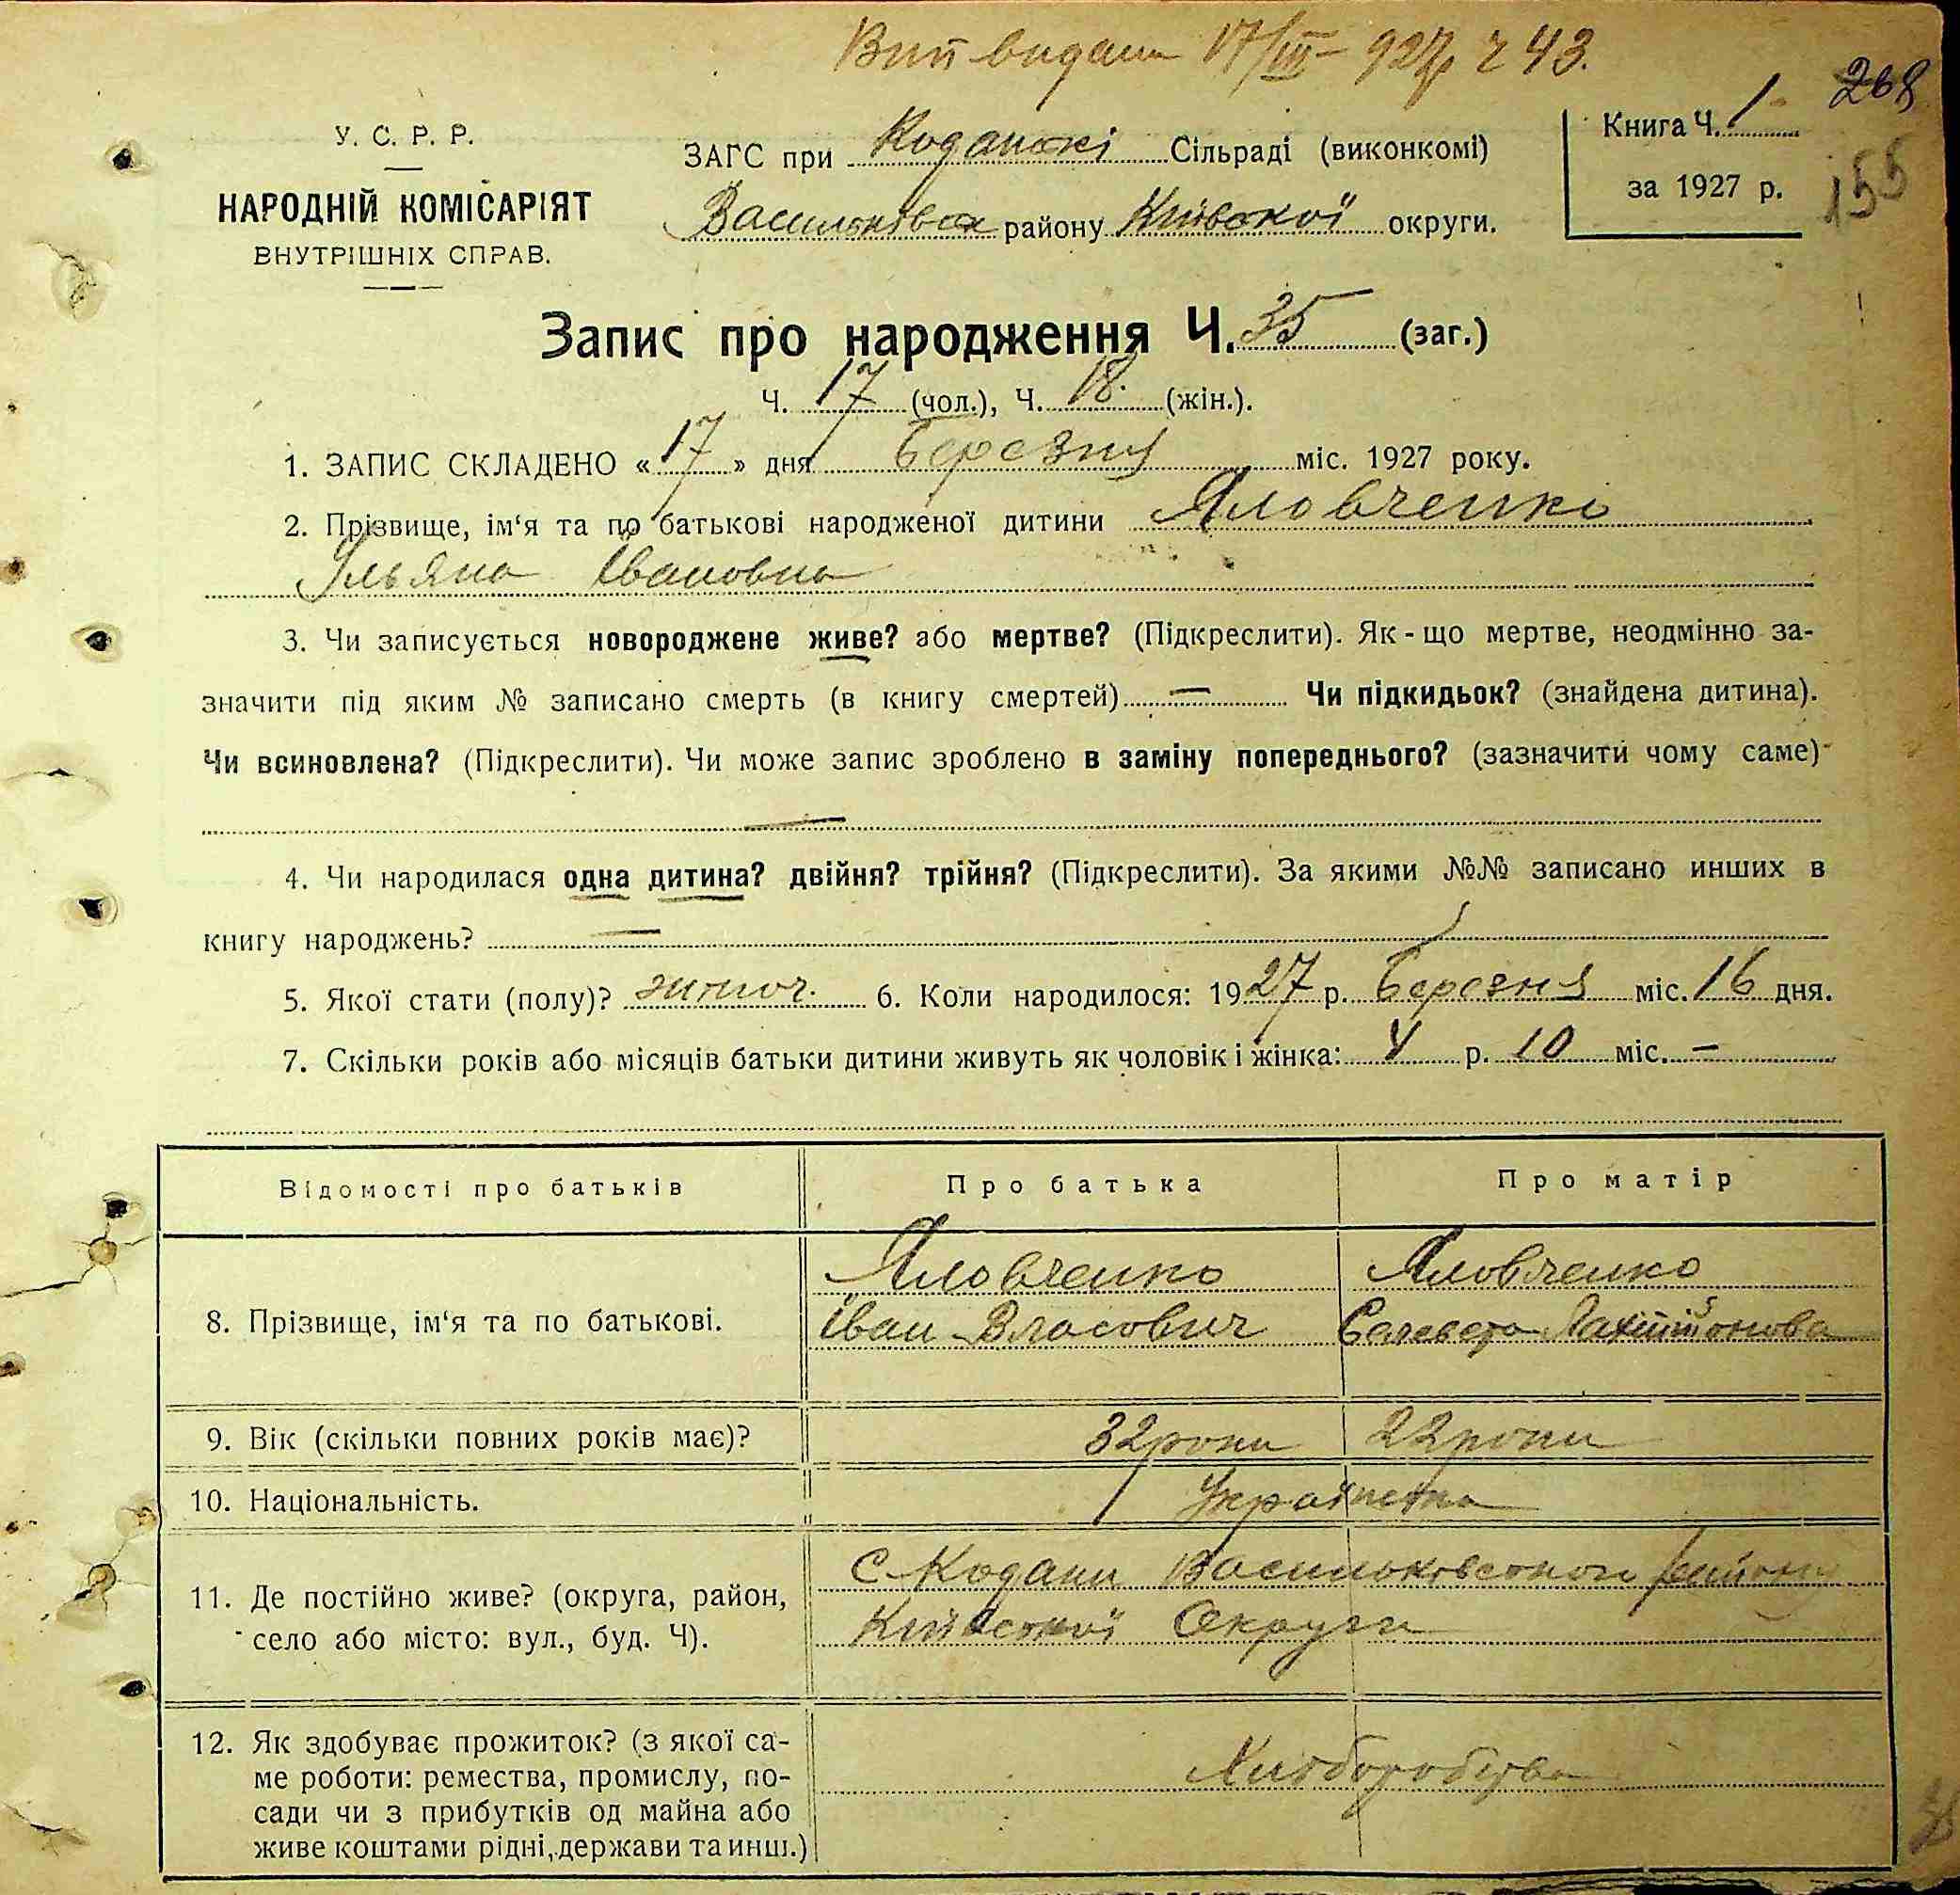 Вип видано 17/III – 927р ч 43.
268
У. С. Р. Р.
НАРОДНІЙ КОМІСАРІЯТ
ВНУТРІШНІХ СПРАВ.
ЗАГС при Коданскі Сільраді (виконкомі)
Васильків району Київскої округи.
Книга Ч. 1
за 1927 р.
155
Запис про народження Ч. 35 (заг.)
Ч. 17 (чол.), Ч. 18 (жін.).
1. ЗАПИС СКЛАДЕНО «17» дня Березня міс. 1927 року.
2. Прізвище, ім‘я та по батькові народженої дитини Яловченко
Ульяна Івановна
3. Чи записується новороджене живе? або мертве? (Підкреслити). Як-що мертве, неодмінно за-
значити під яким № записано смерть (в книгу смертей) — Чи підкидьок? (знайдена дитина).
Чи всиновлена? (Підкреслити). Чи може запис зроблено в заміну попереднього? (зазначити чому саме)
—
4. Чи народилася одна дитина? двійня? трійня? (Підкреслити). За якими №№ записано инших в
книгу народжень? —
5. Якої стати (полу)? жіноч. 6. Коли народилося: 1927 р. Березня міс. 16 дня.
7. Скільки років або місяців батьки дитини живуть як чоловік і жінка: 4 р. 10 міс. —
Відомості про батьків Про батька Про матір
8. Прізвище, ім‘я та по батькові. Яловченко Яловченко
Іван Власович
9. Вік (скільки повних років має)? 32 роки 22 роки
10. Національність. Українска
11. Де постійно живе? (округа, район,
село або місто: вул., буд. Ч).
С Кодаки Васильковского району
Київскої Округи
12. Як здобуває прожиток? (з якої са-
ме роботи: ремества, промислу, по-
сади чи з прибутків од майна або
живе коштами рідні, держави та инш.)
Хліборобство